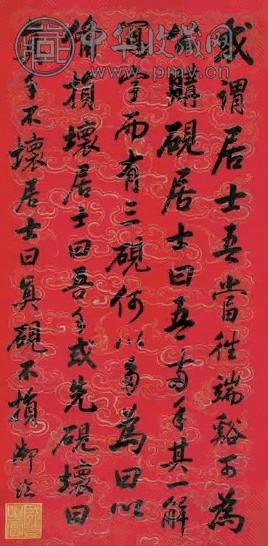 中华收藏网
www.pmv.cn
我謂居士吾當往端谿可為
公購硯居士曰吾兩手其一解
寫字而有三硯何以多為曰以
備損壞居士曰吾手或先硯壞曰
真手不壞居士曰真硯不損 御臨